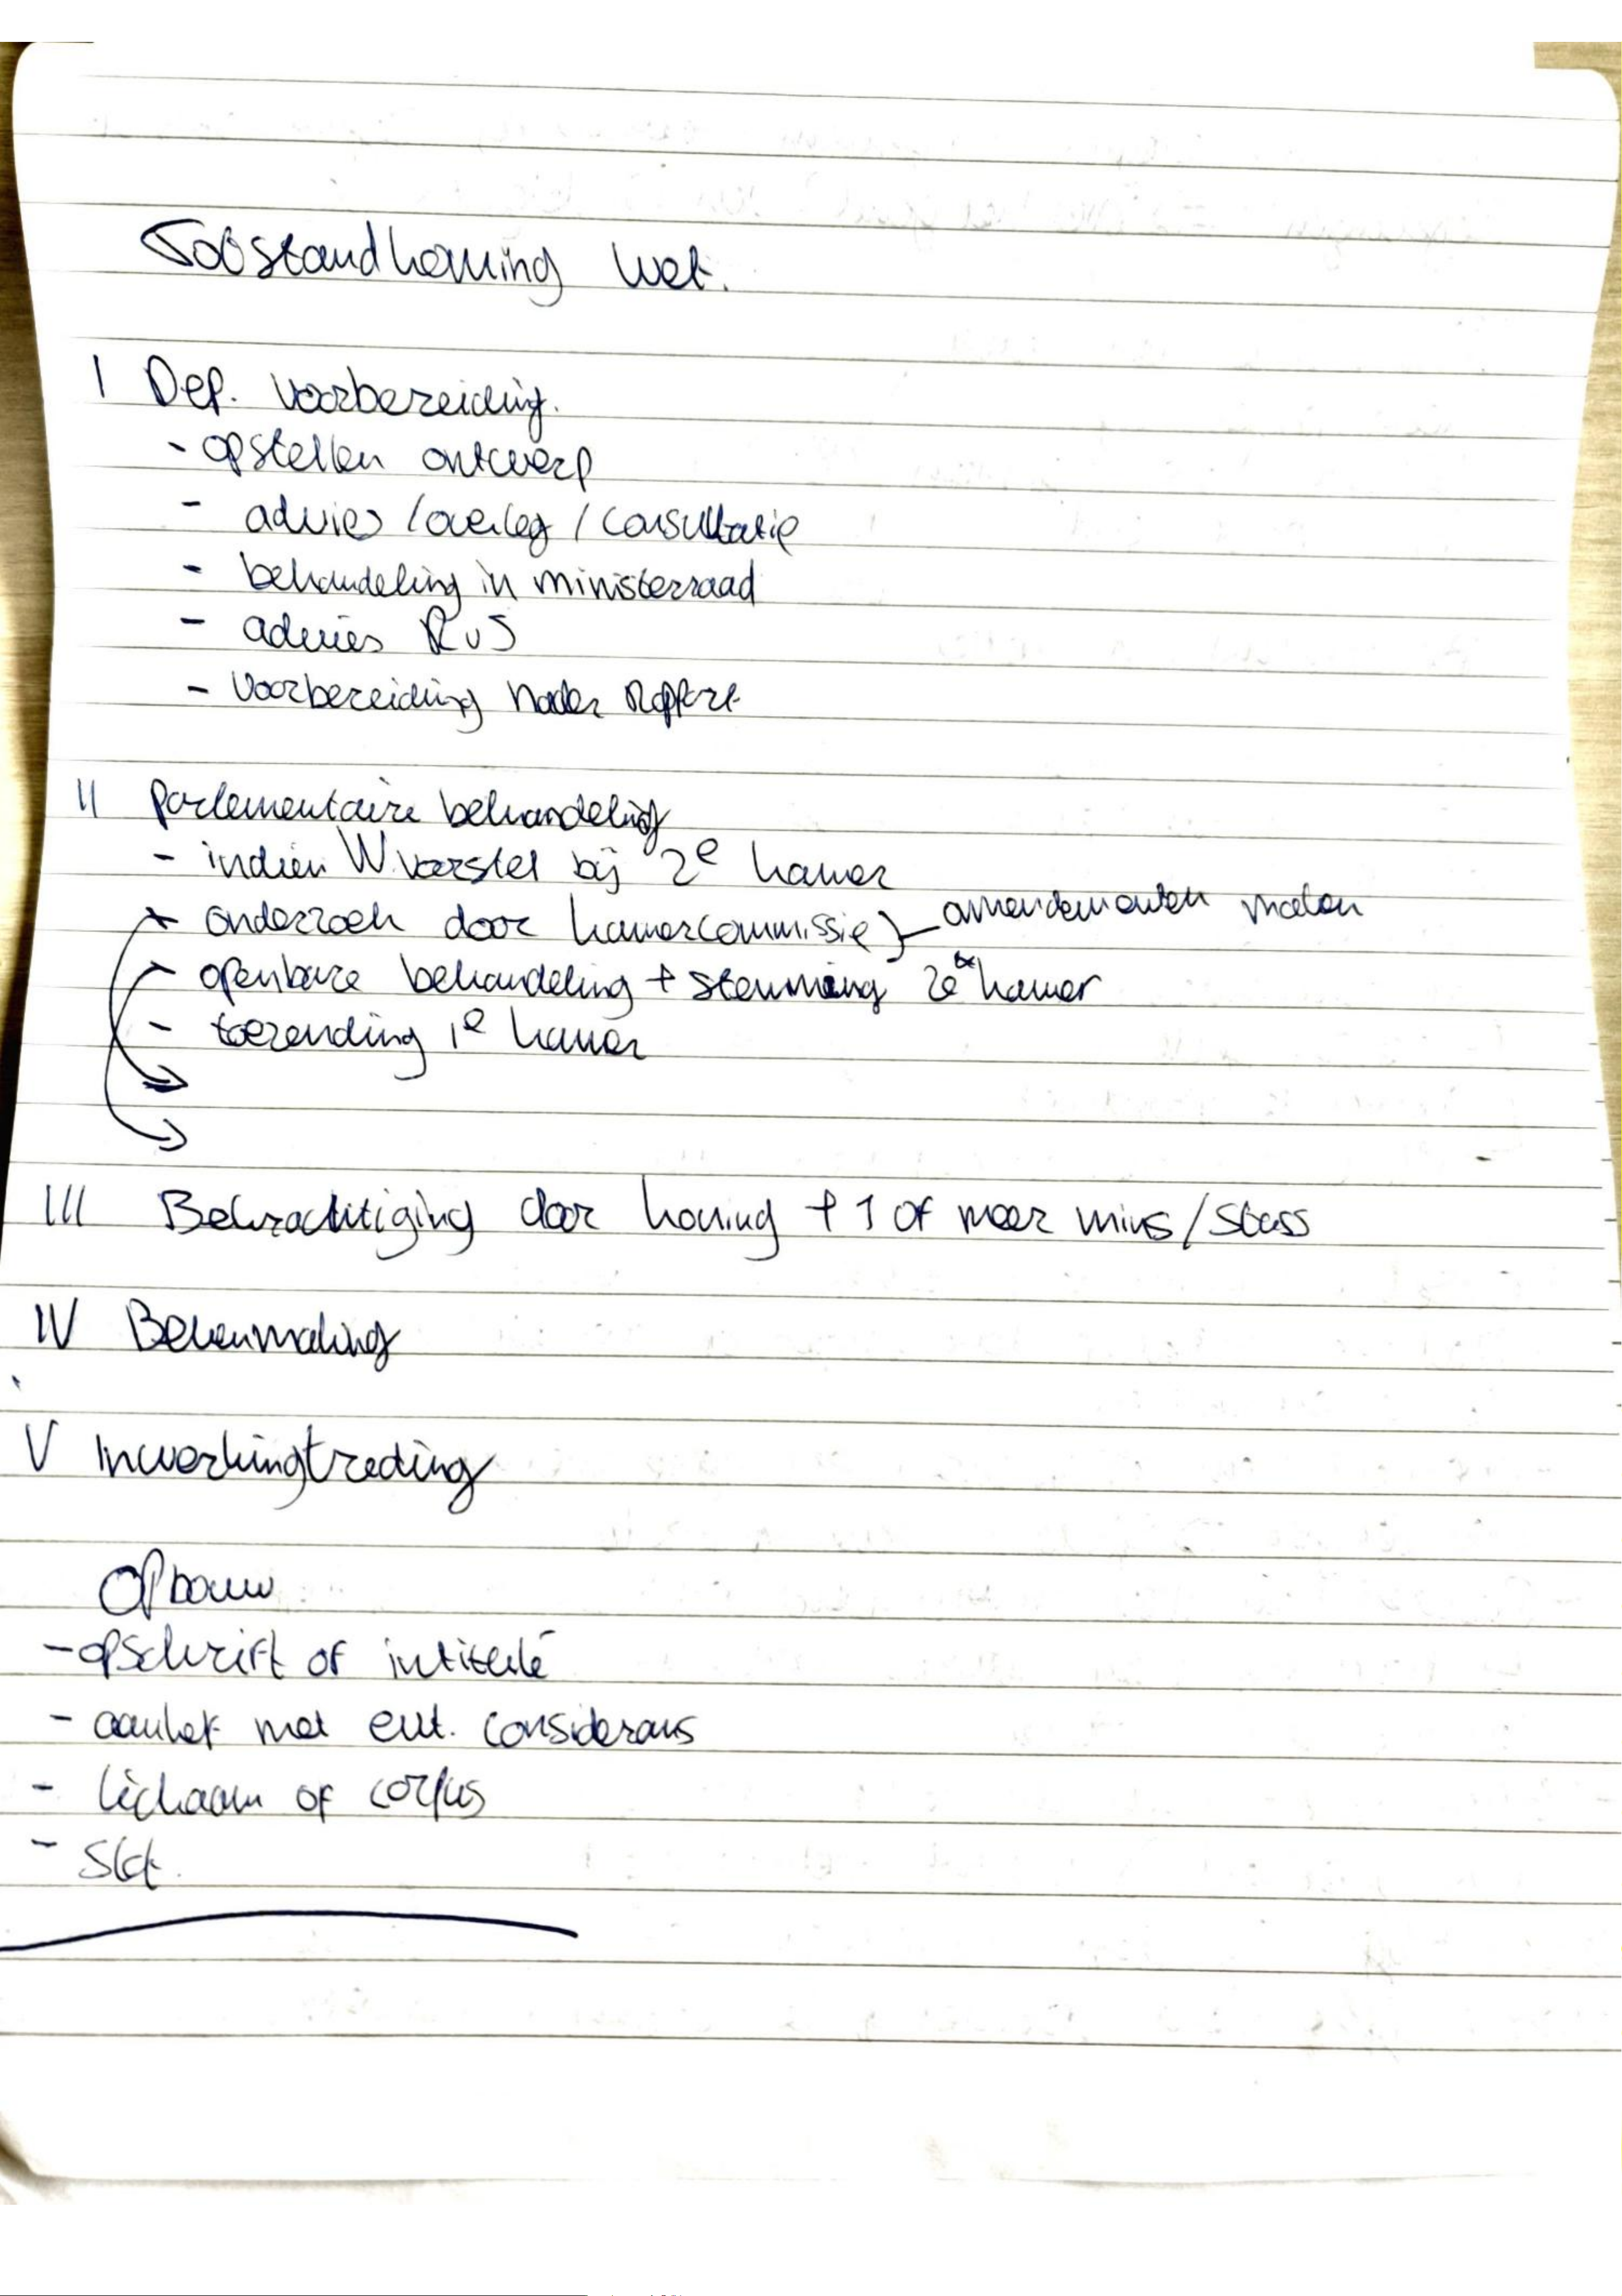 Totstandkoming wet.
I Dep. voorbereiding.
- opstellen ontwerp
- advies / overleg / consultatie
- behandeling in ministerraad
- advies RvS
- voorbereiding nader rapport
II parlementaire behandeling
- indien W.voorstel bij 2e kamer
- onderzoek door kamercommissie } amendementen maken
- openbare behandeling + stemming 2e kamer
- toezending 1e kamer
III Bekrachtiging door koning + 1 of meer mins/stass
IV Bekenmaking
V Inwerkingtreding
Opbouw
- opschrift of intitulé
- aanhef met evt. considerans
- lichaam of corpus
- slot.